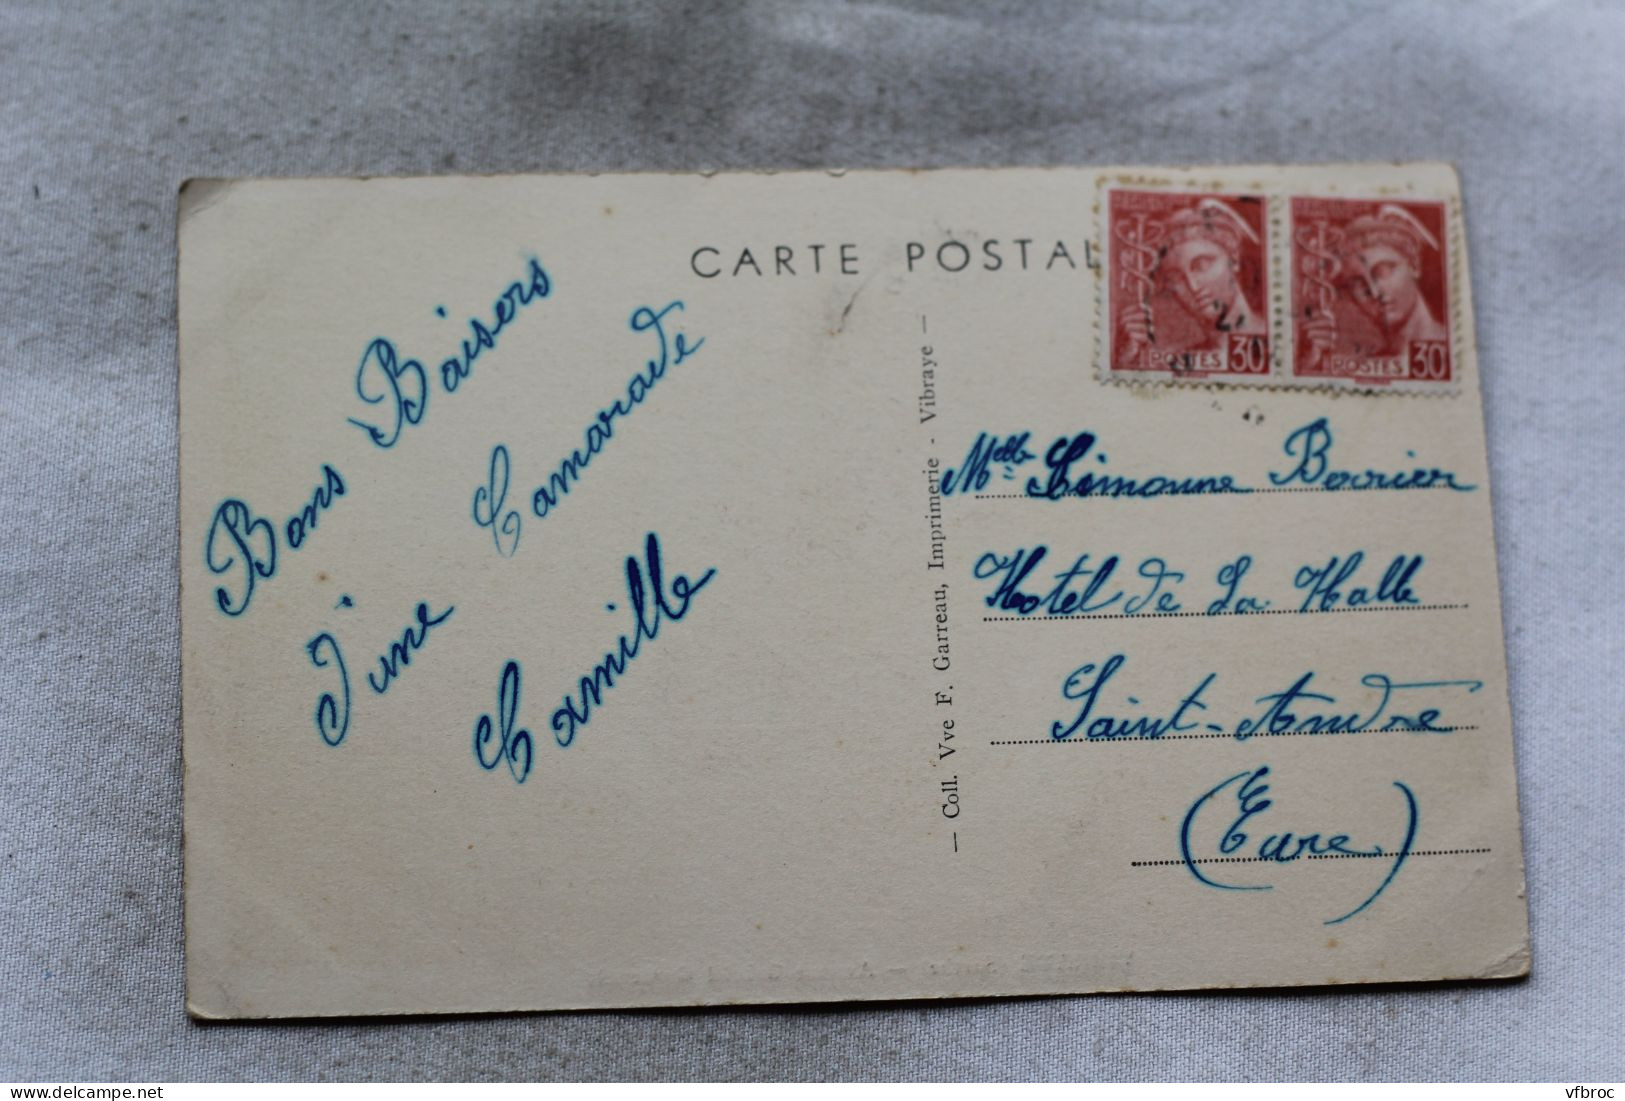 CARTE POSTAL
Bons Baisers
d'une Camarade
Camille
— Coll. Vve F. Garreau, Imprimerie - Vibraye —
POSTES 30
POSTES 30
Mdlle Simonne
Hotel de La Halle
Saint-Andre
(Eure)
vfbroc